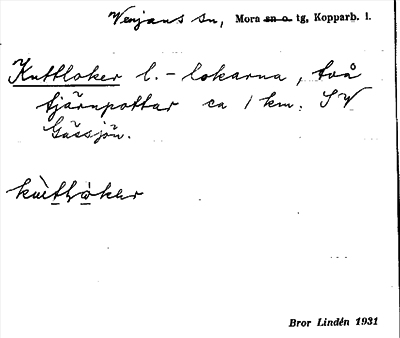 Venjans sn, Mora sn o. tg, Kopparb. l.
Kuttloker l. - lokarna, två
tjärnpottar ca 1 km. SV
Gässjön.
Bror Lindén 1931